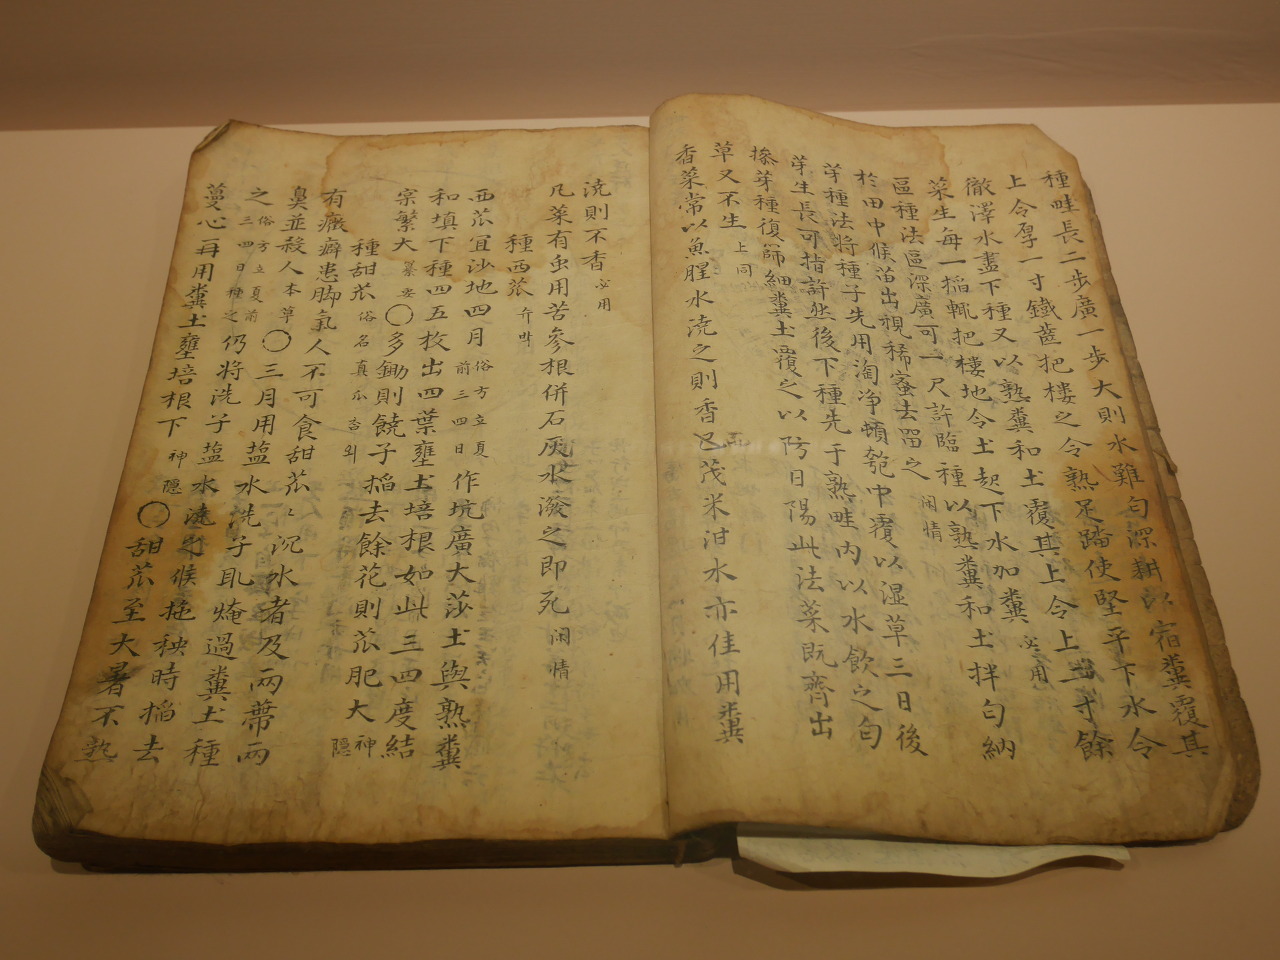 種畦長二步廣一步大則水難匀深耕以宿糞覆其
上令厚一寸鐵齒把樓之令熟足踏使堅平下水令
徹澤水盡下種又以熟糞和土覆其上令上一寸餘
菜生每一揊輒把樓地令土起下水加糞 必用
區種法區深廣可一尺許臨種以熟糞和土拌匀納
於田中候苗出視稀蜜去留之 閑情
芽種法將種子先用淘净頓匏中覆以湿草三日後
芽生長可指許然後下種先于熟畦内以水飲之匀
摻芽種復篩細糞土覆之以防日陽此法菜既齊出
草又不生 上同
香菜常以魚腥水澆之則香已茂米泔水亦佳用糞
澆則不香 必用
凡菜有虫用苦參根併石灰水潑之即死 閑情
種西苽 슈박
西苽宜沙地四月 俗方立夏前三四日 作坑廣大莎土與熟糞
和填下種四五枚出四葉壅土培根如此三四度結
宲繁大 纂要 ○多鋤則饒子揊去餘花則苽肥大 神隱
種甜苽 俗名真瓜 ᄎᆞᆷ외
有癥癖患脚氣人不可食甜苽〻沉水者及兩蔕兩
鼻並殺人 本草 ○三月用塩水洗子㫘熟過糞土種
之 俗方立夏前三四日種之 仍將洗子塩水澆之候拖秧時揊去
蔓心再用糞土壅培根下 神隱 ○甜苽至大暑不熟